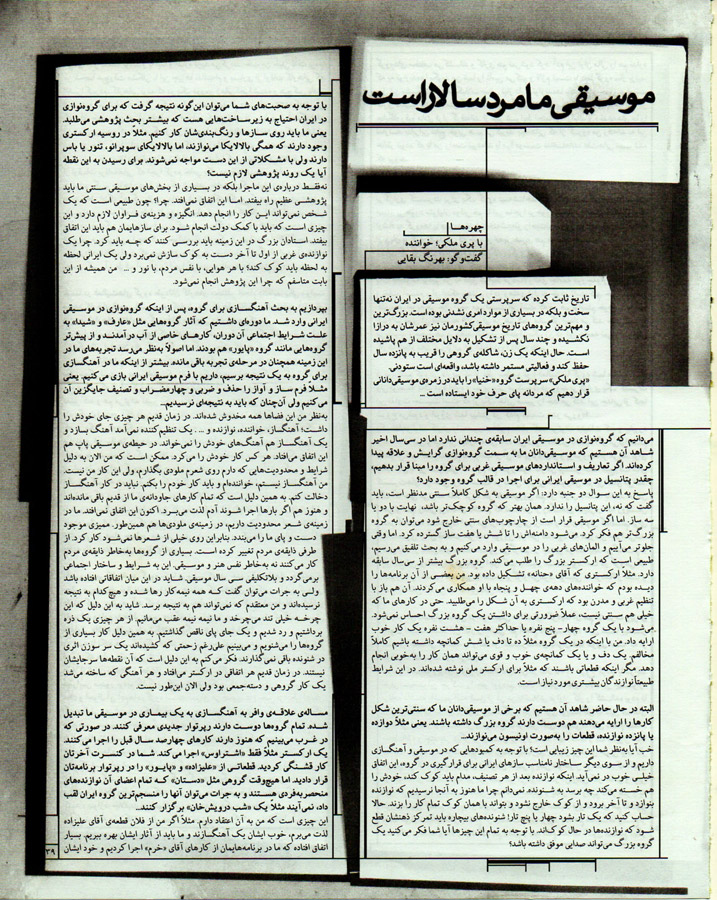 موسیقی ما مردسالار است
چهره‌ها
با پری ملکی؛ خواننده
گفت‌وگو: بهرنگ بقایی
تاریخ ثابت کرده که سرپرستی یک گروه موسیقی در ایران نه‌تنها
سخت و بلکه در بسیاری از موارد امری نشدنی بوده است. بزرگ‌ترین
و مهم‌ترین گروه‌های تاریخ موسیقی کشورمان نیز عمرشان به درازا
نکشیده و چند سال پس از تشکیل به دلایل مختلف از هم پاشیده
است. حال اینکه یک زن، شاکله‌ی گروهی را قریب به پانزده سال
حفظ کند و فعالیتی مستمر داشته باشد، واقعه‌ای است ستودنی.
«پری ملکی» سرپرست گروه «خنیا» را باید در زمره‌ی موسیقی‌دانانی
قرار دهیم که مردانه پای حرف خود ایستاده است ...
می‌دانیم که گروه‌نوازی در موسیقی ایران سابقه‌ی چندانی ندارد اما در سی‌سال اخیر
شاهد آن هستیم که موسیقی‌دانان ما به سمت گروه‌نوازی گرایش و علاقه پیدا
کرده‌اند. اگر تعاریف و استانداردهای موسیقی غربی برای گروه را مبنا قرار بدهیم،
چقدر پتانسیل در موسیقی ایرانی برای اجرا در قالب گروه وجود دارد؟
پاسخ به این سوال دو جنبه دارد: اگر موسیقی به شکل کاملاً سنتی مدنظر است، باید
گفت که نه، این پتانسیل را ندارد. همان بهتر که گروه کوچک‌تر باشد، نهایت با دو یا
سه ساز. اما اگر موسیقی قرار است از چارچوب‌های سنتی خارج شود می‌توان به گروه
بزرگ‌تر هم فکر کرد. می‌شود دامنه‌اش را تا شش یا هفت ساز گسترده کرد. اما وقتی
جلوتر می‌آییم و المان‌های غربی را در موسیقی وارد می‌کنیم و به بحث تلفیق می‌رسیم،
طبیعی است که ارکستر بزرگ را طلب می‌کند. گروه بزرگ بیشتر از سی‌سال سابقه
دارد. مثلاً ارکستری که آقای «حنانه» تشکیل داده بود. من بعضی از آن برنامه‌ها را
دیده بودم که خواننده‌های دهه‌ی چهل و پنجاه با او همکاری می‌کردند. آن هم باز با
تنظیم غربی و مدرن بود که ارکستری به آن شکل را می‌طلبید. حتی در کارهای ما که
خیلی هم سنتی نیست، عملاً ضرورتی برای داشتن یک گروه بزرگ احساس نمی‌شود.
می‌شود با یک گروه چهار – پنج نفره یا حداکثر هفت – هشت نفره یک کار خوب
ارایه داد. من با اینکه در یک گروه مثلاً ده تا دف یا شش کمانچه داشته باشیم کاملاً
مخالفم. یک دف و یا یک کمانچه‌ی خوب و قوی می‌تواند همان کار را به‌خوبی انجام
دهد. مگر اینکه قطعاتی باشند که مثلاً برای ارکستر ملی نوشته شده‌اند. در این شرایط
طبیعتاً نوازندگان بیشتری مورد نیاز است.
البته در حال حاضر شاهد آن هستیم که برخی از موسیقی‌دانان ما که سنتی‌ترین شکل
کارها را ارایه می‌دهند هم دوست دارند گروه بزرگ داشته باشند. یعنی مثلاً دوازده
یا پانزده نوازنده، قطعات را به‌صورت اونیسون می‌نوازند...
خب آیا به‌نظر شما این چیز زیبایی است؟ با توجه به کمبودهایی که در موسیقی و آهنگسازی
داریم و از سوی دیگر ساختار نامناسب سازهای ایرانی برای قرارگیری در گروه، این اتفاق
خیلی خوب در نمی‌آید. اینکه نوازنده بعد از هر تصنیف، مدام باید کوک کند، خودش را
هم خسته می‌کند چه برسد به شنونده. نمی‌دانم چرا ما هنوز به آنجا نرسیدیم که نوازنده
بنوازد و تا آخر برود و از کوک خارج نشود و بتواند با همان کوک تمام کار را بزند. حالا
حساب کنید که یک تار بشود چهار یا پنج تار! شنونده‌های بیچاره باید تمرکز ذهنشان قطع
شود که نوازنده‌ها در حال کوک‌اند. با توجه به تمام این چیزها آیا شما فکر می‌کنید یک
گروه بزرگ می‌تواند صدایی موفق داشته باشد؟
با توجه به صحبت‌های شما می‌توان این‌گونه نتیجه گرفت که برای گروه‌نوازی
در ایران احتیاج به زیرساخت‌هایی هست که بیشتر بحث پژوهشی می‌طلبد.
یعنی ما باید روی سازها و رنگ‌بندی‌شان کار کنیم. مثلاً در روسیه ارکستری
وجود دارند که همگی بالالایکا می‌نوازند، اما بالالایکای سوپرانو، تنور یا باس
دارند ولی با مشکلاتی از این دست مواجه نمی‌شوند. برای رسیدن به این نقطه
آیا یک روند پژوهشی لازم نیست؟
نه‌فقط درباره‌ی این ماجرا بلکه در بسیاری از بخش‌های موسیقی سنتی ما باید
پژوهشی عظیم راه بیفتد. اما این اتفاق نمی‌افتد. چرا؟ چون طبیعی است که یک
شخص نمی‌تواند این کار را انجام دهد. انگیزه و هزینه‌ی فراوان لازم دارد و این
چیزی است که باید با کمک دولت انجام شود. برای سازهایمان هم باید این اتفاق
بیفتد. استادان بزرگ در این زمینه باید بررسی کنند که چه باید کرد. چرا یک
نوازنده‌ی غربی از اول تا آخر دست به کوک سازش نمی‌برد ولی یک ایرانی لحظه
به لحظه باید کوک کند؟ با هر هوایی، با نفس مردم، با نور و ... من همیشه از این
بابت متاسفم که چرا این پژوهش انجام نمی‌شود.
بپردازیم به بحث آهنگسازی برای گروه، پس از اینکه گروه‌نوازی در موسیقی
ایرانی وارد شد. ما دوره‌ای داشتیم که آثار گروه‌هایی مثل «عارف» و «شیدا» به
علت شرایط اجتماعی آن دوران، کارهای خاصی از آب در آمدند و از پیش‌تر
گروه‌هایی مانند گروه «پایور» هم بودند اما اصولاً به‌نظر می‌رسد تجربه‌های ما در
این زمینه همچنان در مرحله‌ی تجربه باقی مانده. بیشتر از اینکه ما در آهنگسازی
برای گروه به یک نتیجه برسیم، داریم با فرم موسیقی ایرانی بازی می‌کنیم. یعنی
مثلاً فرم ساز و آواز را حذف و ضربی و چهارمضراب و تصنیف جایگزین آن
می‌کنیم ولی آن‌چنان که باید به نتیجه‌ای نرسیدیم.
به‌نظر من این فضاها همه مخدوش شده‌اند. در زمان قدیم هر چیزی جای خودش را
داشت؛ آهنگساز، خواننده، نوازنده و ... یک تنظیم‌کننده نمی‌آمد آهنگ بسازد و
یک آهنگساز هم آهنگ‌های خودش را نمی‌خواند. در حیطه‌ی موسیقی پاپ هم
این اتفاق می‌افتاد. هر کس کار خودش را می‌کرد. ممکن است که من الان به دلیل
شرایط و محدودیت‌هایی که دارم روی شعرم ملودی بگذارم. ولی این کار من نیست.
من آهنگساز نیستم، خواننده‌ام و باید کار خودم را بکنم. نباید در کار آهنگساز
دخالت کنم. به همین دلیل است که تمام کارهای جاودانه‌ی ما از قدیم باقی مانده‌اند
و هنوز هم اگر بارها اجرا شوند آدم لذت می‌برد. اکنون این اتفاق نمی‌افتد. ما در
زمینه‌ی شعر محدودیت داریم، در زمینه‌ی ملودی‌ها هم همین‌طور. ممیزی موجود
دست و پای ما را می‌بندد. بنابراین روی خیلی از شعرها نمی‌شود کار کرد. از
طرفی ذایقه‌ی مردم تغییر کرده است. بسیاری از گروه‌ها به‌خاطر ذایقه‌ی مردم
کار می‌کنند نه به‌خاطر نفس هنر و موسیقی. این به شرایط و ساختار اجتماعی
برمی‌گردد و بلاتکلیفی سی سال موسیقی. شاید در این میان اتفاقاتی افتاده باشد
ولی به جرات می‌توان گفت که همه نیمه‌کار رها شده و هیچ‌کدام به نتیجه
نرسیده‌اند و من معتقدم که نمی‌تواند هم به نتیجه برسد. شاید به این دلیل که این
چرخه خیلی تند می‌چرخد و ما نیمه نیمه عقب می‌مانیم. از هر چیزی یک ذره
برداشتیم و رد شدیم و یک جای پای ناقص گذاشتیم. به همین دلیل کار بسیاری از
گروه‌ها را می‌شنویم و می‌بینیم علی‌رغم زحمتی که کشیده‌اند یک سر سوزن اثری
در شنونده باقی نمی‌گذارند. فکر می‌کنم به این دلیل است که آن نقطه‌ها سرجایشان
نیستند. در زمان قدیم هر اتفاقی در ارکستر می‌افتاد و هر آهنگی که ساخته می‌شد
یک کار گروهی و دسته‌جمعی بود ولی الان این‌طور نیست.
مساله‌ی علاقه‌ی وافر به آهنگسازی به یک بیماری در موسیقی ما تبدیل
شده. تمام گروه‌ها دوست دارند رپرتوار جدیدی معرفی کنند. در صورتی که
در غرب می‌بینیم که هنوز دارند کارهای چهارصد سال قبل را اجرا می‌کنند.
یک ارکستر مثلاً فقط «اشتراوس» اجرا می‌کند. شما در کنسرت آخرتان
کار قشنگی کردید. قطعاتی از «علیزاده» و «پایور» را در رپرتوار برنامه‌تان
قرار دادید. اما هیچ‌وقت گروهی مثل «دستان» که تمام اعضای آن نوازنده‌های
منحصربه‌فردی هستند و به جرات می‌توان آنها را منسجم‌ترین گروه ایران لقب
داد، نمی‌آیند مثلاً یک «شب درویش‌خان» برگزار کنند.
این چیزی است که من به آن اعتقاد دارم. مثلاً اگر من از فلان قطعه‌ی آقای علیزاده
لذت می‌برم، خوب ایشان یک آهنگسازند و ما باید از آثار ایشان بهره ببریم. بسیار
اتفاق افتاده که ما در برنامه‌هایمان از کارهای آقای «خرم» اجرا کردیم و خود ایشان
۳۹